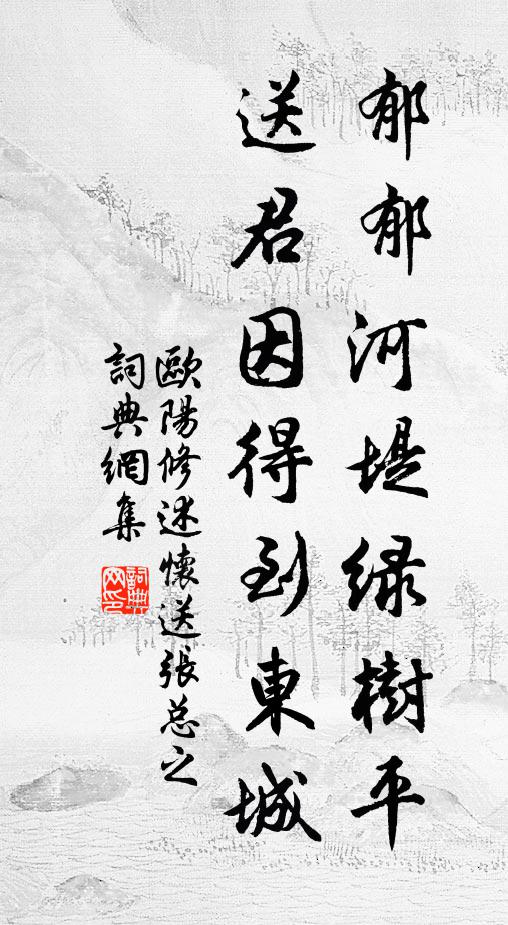 郁郁河堤绿樹平
送君因得到東城
歐陽修述懷送張总之
詞典網集
詞典网印